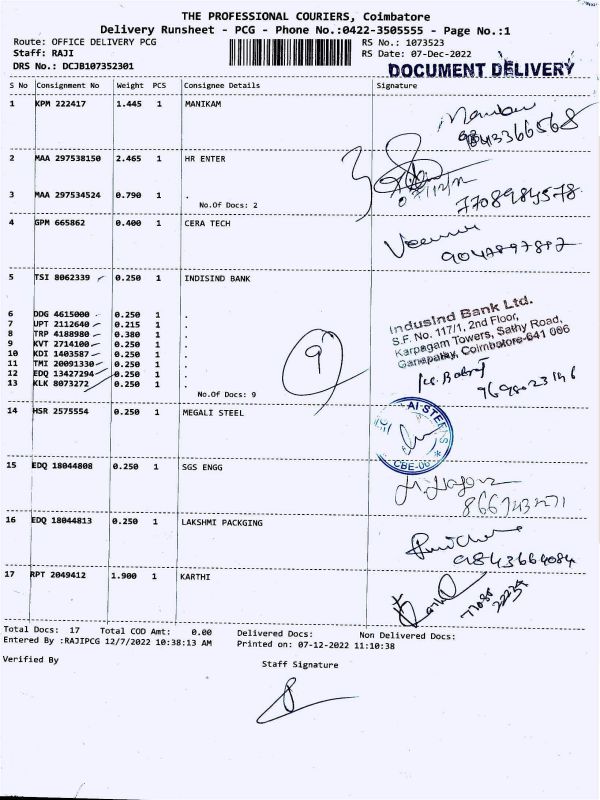 THE PROFESSIONAL COURIERS, Coimbatore
Delivery Runsheet - PCG - Phone No.:0422-3505555 - Page No.:1
Route: OFFICE DELIVERY PCG RS No.: 1073523
Staff: RAJI RS Date: 07-Dec-2022
DRS No.: DCJB107352301 DOCUMENT DELIVERY
S No Consignment No Weight PCS Consignee Details Signature
1 KPM 222417 1.445 1 MANIKAM
9843366568
2 MAA 297538150 2.465 1 HR ENTER
3 MAA 297534524 0.790 1 .
No.Of Docs: 2
7708984578
4 GPM 665862 0.400 1 CERA TECH
5 TSI 8062339 0.250 1 INDISIND BANK
6 DDG 4615000 0.250 1 .
7 UPT 2112640 0.215 1 .
8 TRP 4188980 0.380 1 .
9 KVT 2714100 0.250 1 .
10 KDI 1403587 0.250 1 .
11 TMI 20091330 0.250 1 .
12 EDQ 13427294 0.250 1 .
13 KLK 8073272 0.250 1 .
No.Of Docs: 9
9
IndusInd Bank Ltd.
S.F. No. 117/1, 2nd Floor,
Karpagam Towers, Sathy Road,
Ganapathy, Coimbatore-641 006
14 HSR 2575554 0.250 1 MEGALI STEEL
CBE-06
15 EDQ 18044808 0.250 1 SGS ENGG
16 EDQ 18044813 0.250 1 LAKSHMI PACKGING
9843664084
17 RPT 2049412 1.900 1 KARTHI
Total Docs: 17 Total COD Amt: 0.00 Delivered Docs: Non Delivered Docs:
Entered By :RAJIPCG 12/7/2022 10:38:13 AM Printed on: 07-12-2022 11:10:38
Verified By Staff Signature